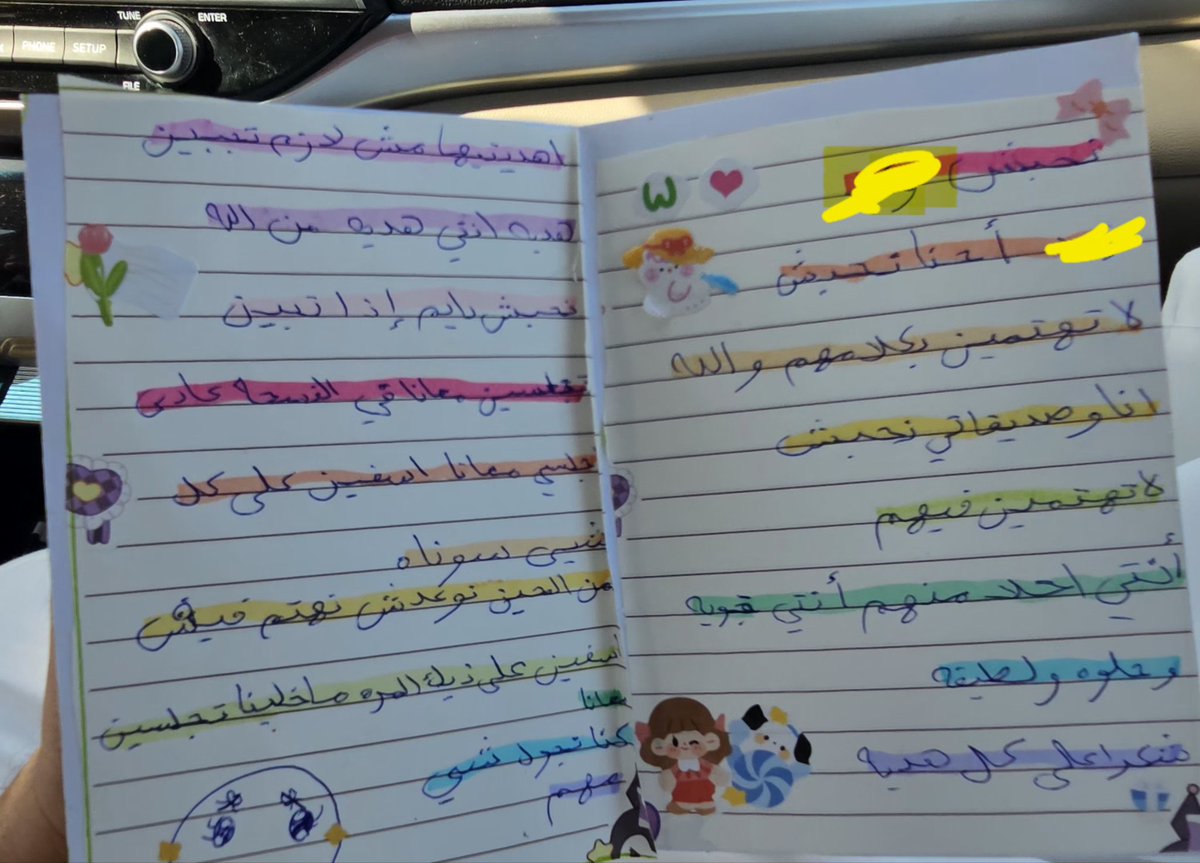 TUNE
ENTER
PHONE
SETUP
FILE
نحبش و
W
أحنا نحبش
لا تهتمين بكلامهم والله
انا وصديقاتي نحبش
لا تهتمين فيهم
أنتي احلا منهم أنتي قويه
وحلوه ولطيفه
شكرا على كل هديه
اهديتيها مش لازم تجيبين
هديه انتي هديه من الله
نحبش دايم إذا تبين
تجلسين معانا في الفسحه عادي
جلسي معانا اسفين على كل
شيى سوناه
من الحين نوعدش نهتم فيش
اسفين على ذيك المره ماخلينا تجلسين
معانا
كنا نجول شي
مهم